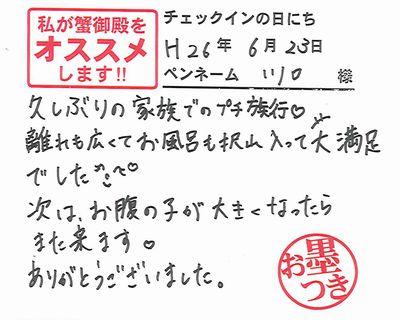 私が蟹御殿を
オススメ
します!!
チェックインの日にち
H26年 6月23日
ペンネーム 様
久しぶりの家族でのプチ旅行♡
離れも広くてお風呂も沢山入って大満足
でした
次は、お腹の子が大きくなったら
また来ます♡
ありがとうございました。
お墨つき